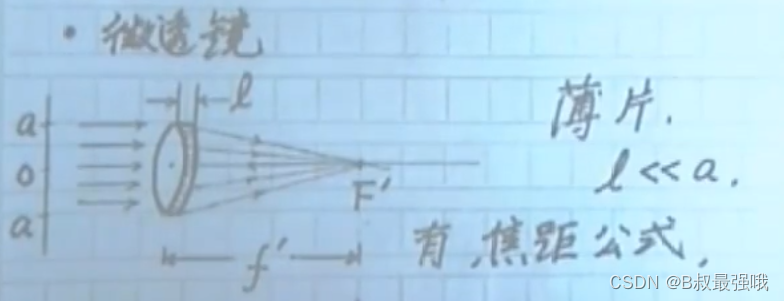 • 微透镜
l
a
o
a
F'
f'
薄片.
l << a.
有,焦距公式,
CSDN @B叔最强哦